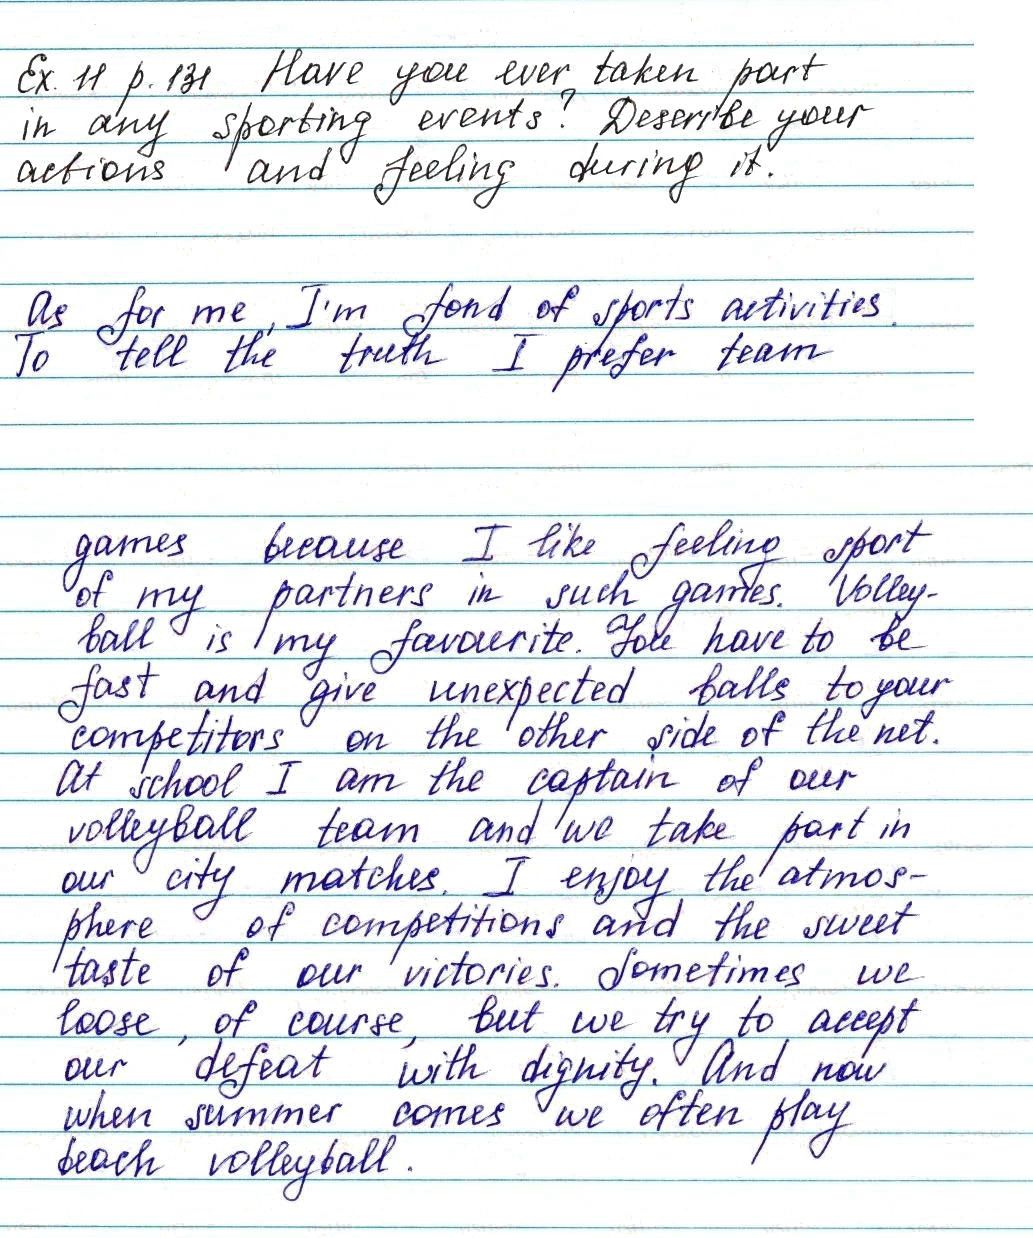 Ex. 11 p. 131 Have you ever taken part
in any sporting events? Describe your
actions and feeling during it.
As for me, I'm fond of sports activities.
To tell the truth I prefer team
games because I like feeling sport
of my partners in such games. Volley-
ball is my favourite. You have to be
fast and give unexpected balls to your
competitors on the other side of the net.
At school I am the captain of our
volleyball team and we take part in
our city matches. I enjoy the atmos-
phere of competitions and the sweet
taste of our victories. Sometimes we
loose, of course, but we try to accept
our defeat with dignity. And now
when summer comes we often play
beach volleyball.